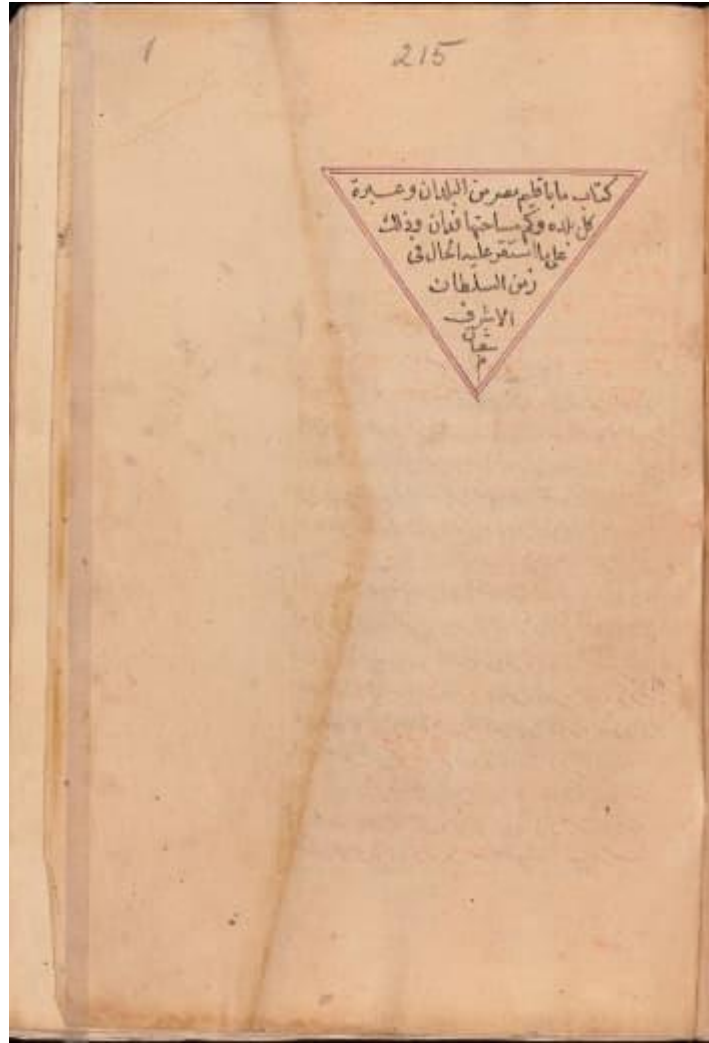 1
215
كتاب ما باقليم مصر من البلدان وعبرة
كل بلده وكم مساحتها فدان وذلك
على ما استقر عليه الحال في
زمن السلطان
الاشرف
شعبان
م